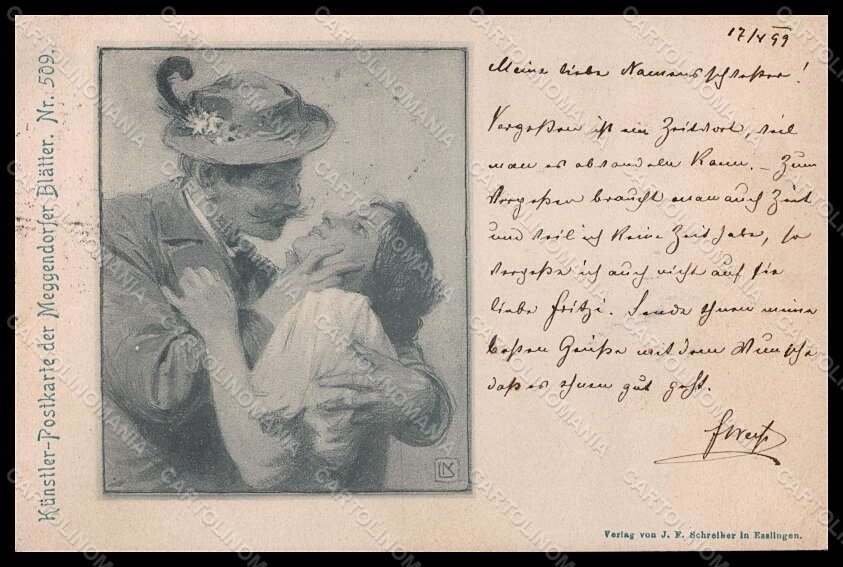 Künstler-Postkarte der Meggendorfer Blätter. Nr. 509.
17/X 99
Meine liebe Namensschwester!
Vergeßen ist ein Zeitwort, weil
man es abwandeln kann. – Zum
Vergeßen braucht man auch Zeit
und weil ich keine Zeit habe, so
vergeße ich auch nicht auf Sie
liebe Fritzi. Sende Ihnen meine
besten Grüße mit dem Wunsche
daß es Ihnen gut geht.
Verlag von J. F. Schreiber in Esslingen.
CARTOLINOMANIA